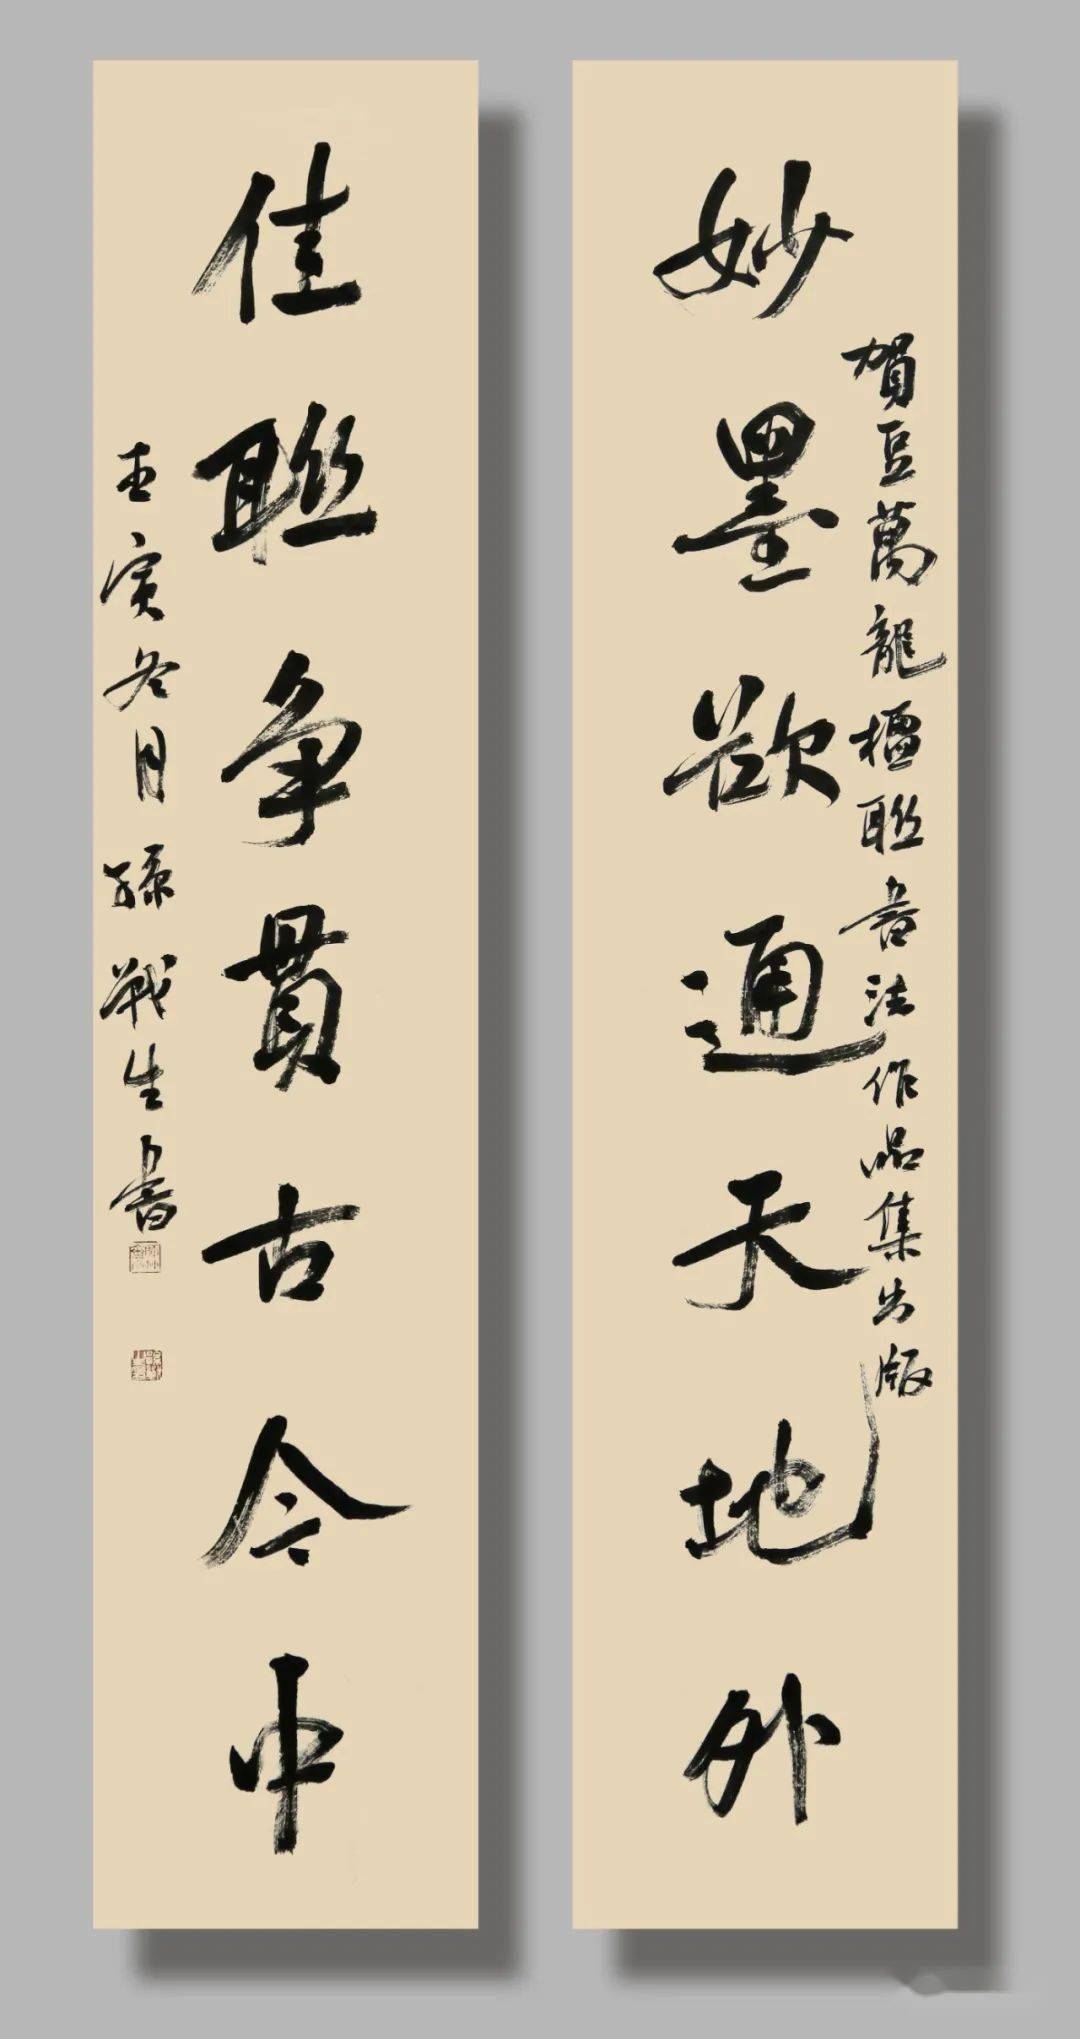 妙墨欲通天地外
賀豆萬龍楹聯书法作品集出版
佳联争貫古今中
壬寅冬月孫戰生書